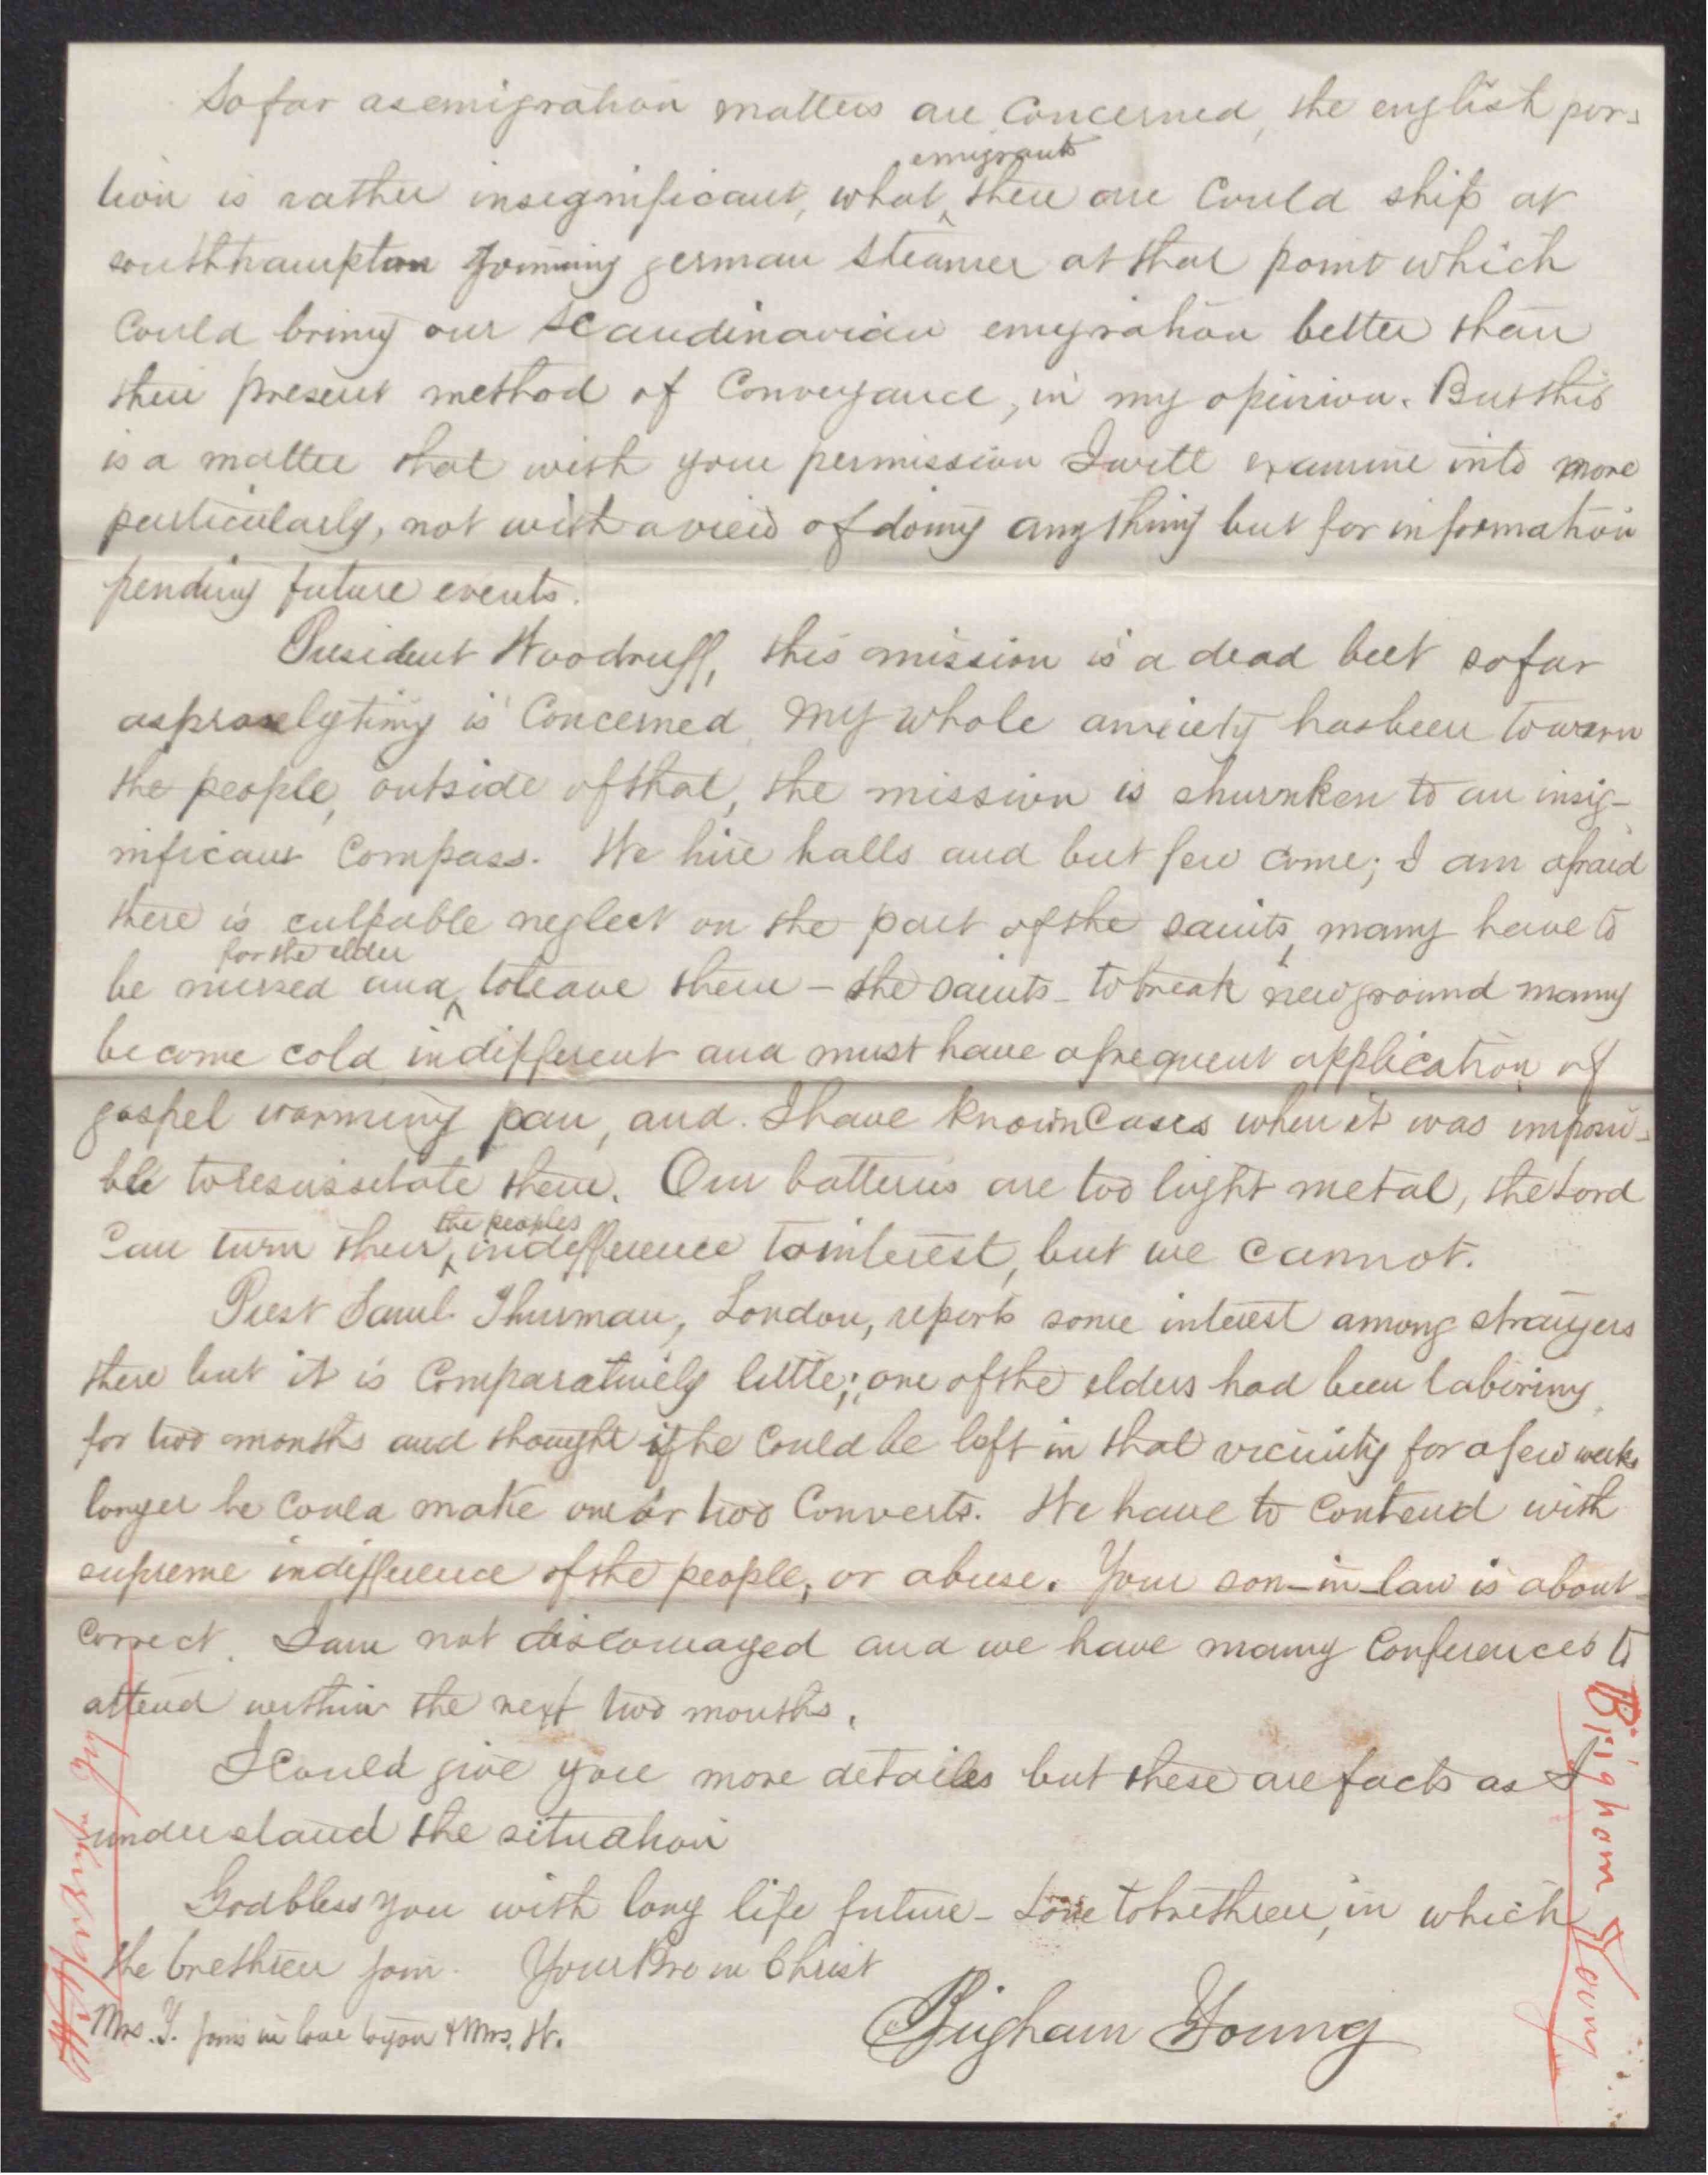 So far as emigration matters are concerned, the english por-
emigrants
tion is rather insegnificant, what ^ there are could ship at
southhampton joining german steamer at that point which
could bring our scandinavian emigration better than
their present method of conveyance, in my opinion. But this
is a matter that with your permission I will examine into more
particularly, not with a view of doing any thing but for information
pending future events.
President Woodruff, this mission is a dead beet so far
as proselyting is concerned, my whole anxiety has been to warn
the people, outside of that, the mission is shurnken to an insig-
nificant compass. We hire halls and but few come; I am afraid
there is culpable neglect on the part of the saints, many have to
for the elder
be nursed and ^ to leave them – the saints – to break new ground many
become cold, indifferent and must have a frequent application of
gospel warming pan, and I have known cases when it was impossi-
ble to resussetate them. Our batteries are too light metal, the Lord
the peoples
can turn their ^ indefference to interest, but we cannot.
Prest Saml Thurman, London, reports some interest among strangers
there but it is comparatively little; one of the elders had been laboring
for two months and thought if he could be left in that vicinity for a few weeks
longer he could make one or two converts. We have to contend with
supreme indifference of the people, or abuse. Your son-in-law is about
correct. I am not discouraged and we have many conferences to
attend within the next two months.
I could give you more detailes but these are facts as I
understand the situation
God bless you with long life future – Love to brethren, in which
the brethren join. Your Bro in Christ
Brigham Young
Mrs. Y. joins in love to you & Mrs. W.
Brigham Young